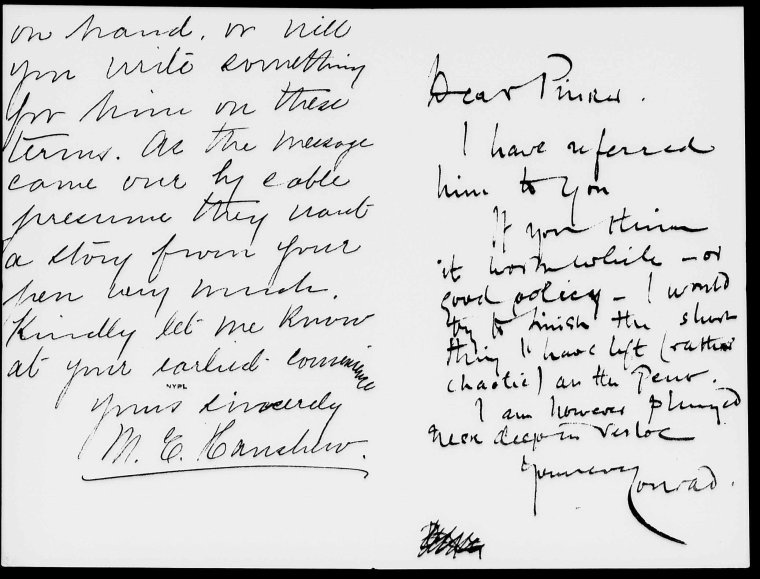 on hand, or will
you write something
for him on these
terms. As the message
came over by cable
presume they want
a story from your
pen very much.
Kindly let me know
at your earliest convenience
NYPL
Yours sincerely
M. E. Hanshew.
Dear Pinker.
I have referred
him to you
If you think
it worth while – or
good policy – I would
try to finish the short
thing I have left (rather
chaotic) at the Pent.
I am however plunged
neck deep in Verloc
Yours ever Conrad.